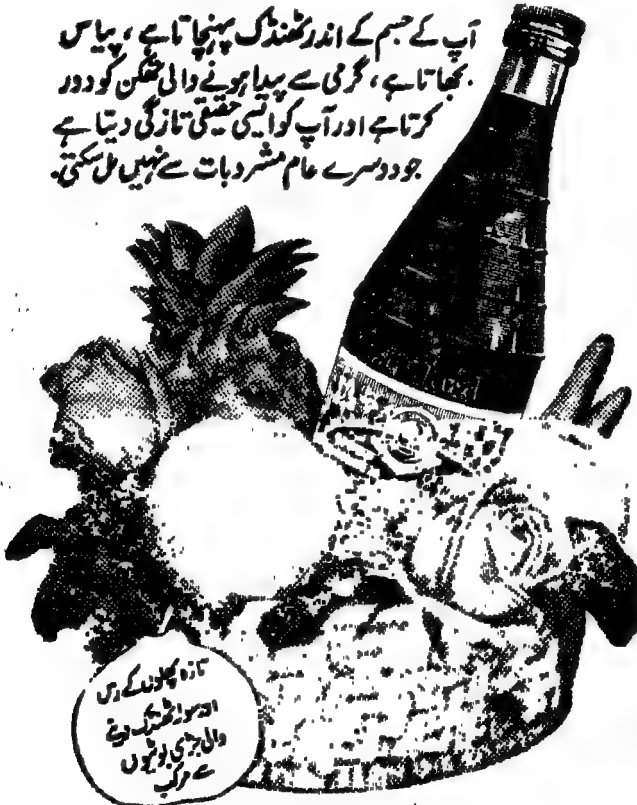 آپ کے جسم کے اندر ٹھنڈک پہنچاتا ہے ، پیاس
بجھاتا ہے ، گرمی سے پیدا ہونے والی تھکن کو دور
کرتا ہے اور آپ کو ایسی حقیقی تازگی دیتا ہے
جو دوسرے عام مشروبات سے نہیں مل سکتی۔
تازہ پھلوں کے رس
اور سوا ٹھنڈک دینے
والی جڑی بوٹیوں
سے مرکب